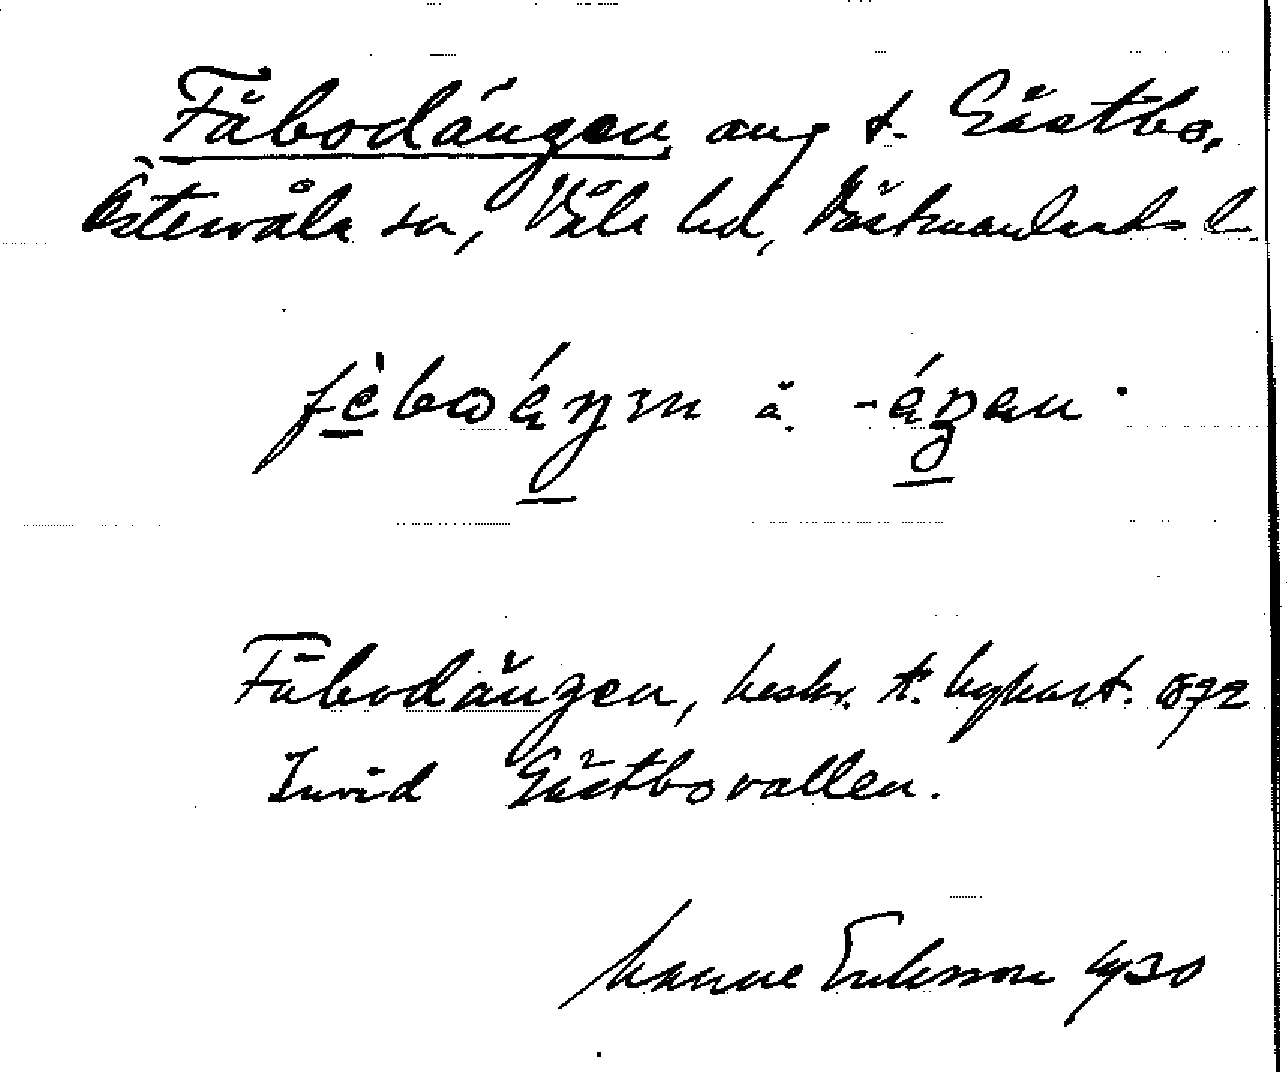 Fäbodängen äng t. Gästbo,
Östervåla sn, Våla hd, Västmanlands l.
Fäbodängen, beskr. t. bykart. 1872
Invid Gästbovallen.
Manne Eriksson 1930